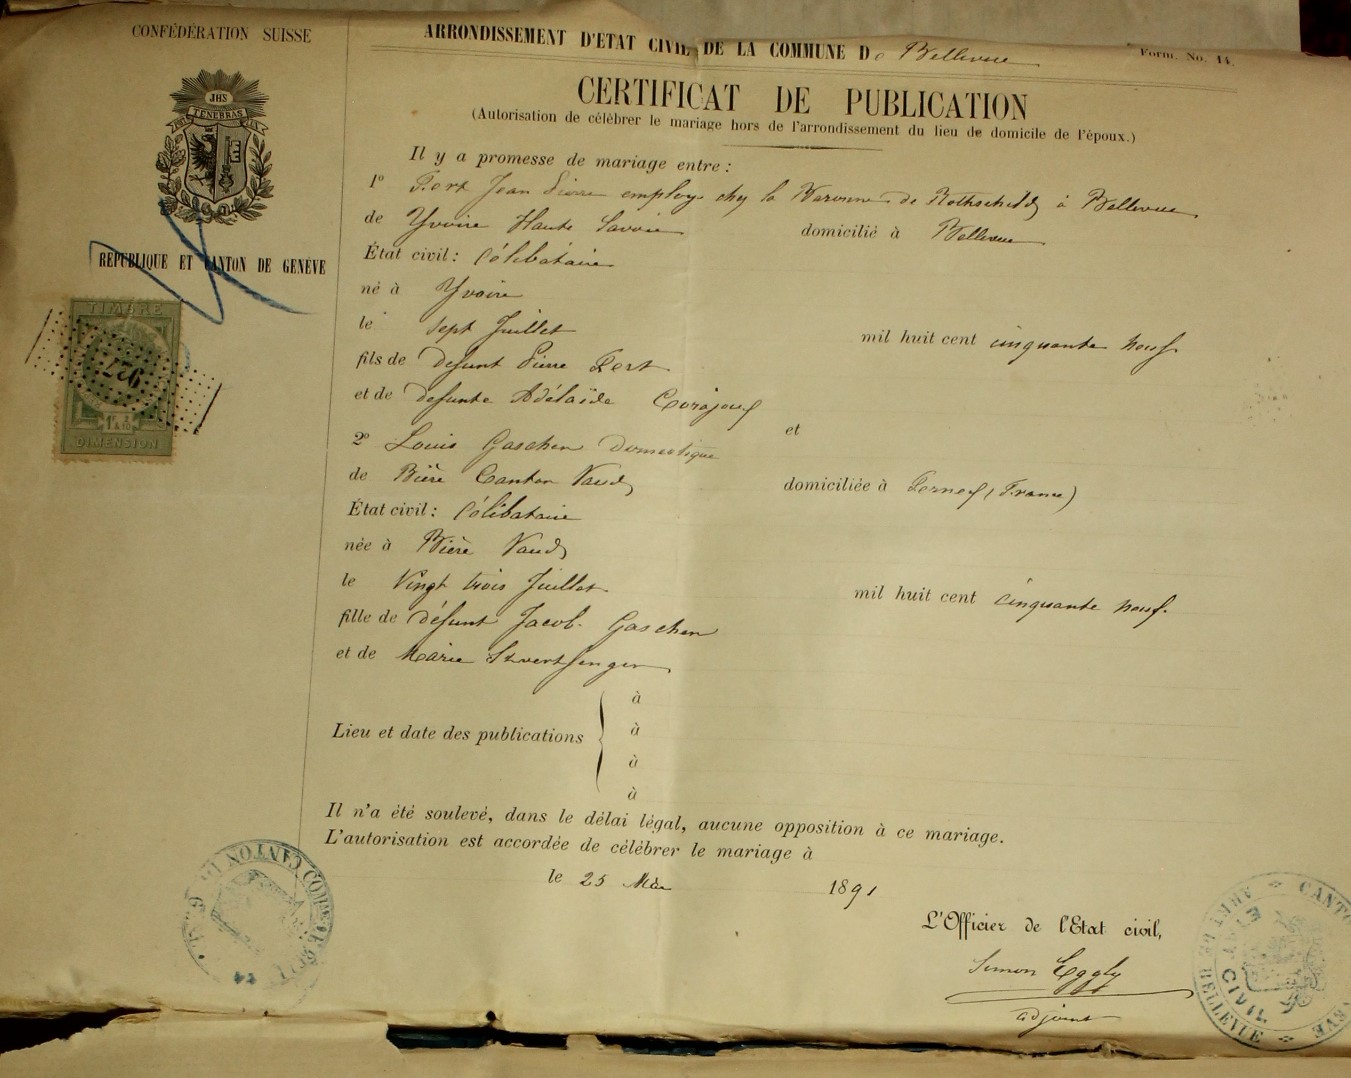 CONFÉDÉRATION SUISSE
JHS
POST TENEBRAS LUX
RÉPUBLIQUE ET CANTON DE GENÈVE
TIMBRE
927
DIMENSION
ARRONDISSEMENT D'ÉTAT CIVIL DE LA COMMUNE De Bellevue
Form. No. 14.
CERTIFICAT DE PUBLICATION
(Autorisation de célébrer le mariage hors de l'arrondissement du lieu de domicile de l'époux.)
Il y a promesse de mariage entre :
1º Fert Jean Pierre employé chez la Baronne de Rothschild à Bellevue
de Yvoire Haute Savoie domicilié à Bellevue
État civil : Célibataire
né à Yvoire
le sept Juillet mil huit cent cinquante neuf
fils de defunt Pierre Fert
et de defunte Adélaïde
et
2º Louise Gaschen Domestique
de Bière Canton Vaud domiciliée à Ferney (France)
État civil : Célibataire
née à Bière Vaud
le Vingt trois Juillet mil huit cent cinquante neuf.
fille de défunt Jacob Gaschen
et de Marie
Lieu et date des publications
à
à
à
à
Il n'a été soulevé, dans le délai légal, aucune opposition à ce mariage.
L'autorisation est accordée de célébrer le mariage à
le 25 Mai 1891
L'Officier de l'Etat civil,
Simon Eggly
adjoint
ETAT CIVIL
BELLEVUE